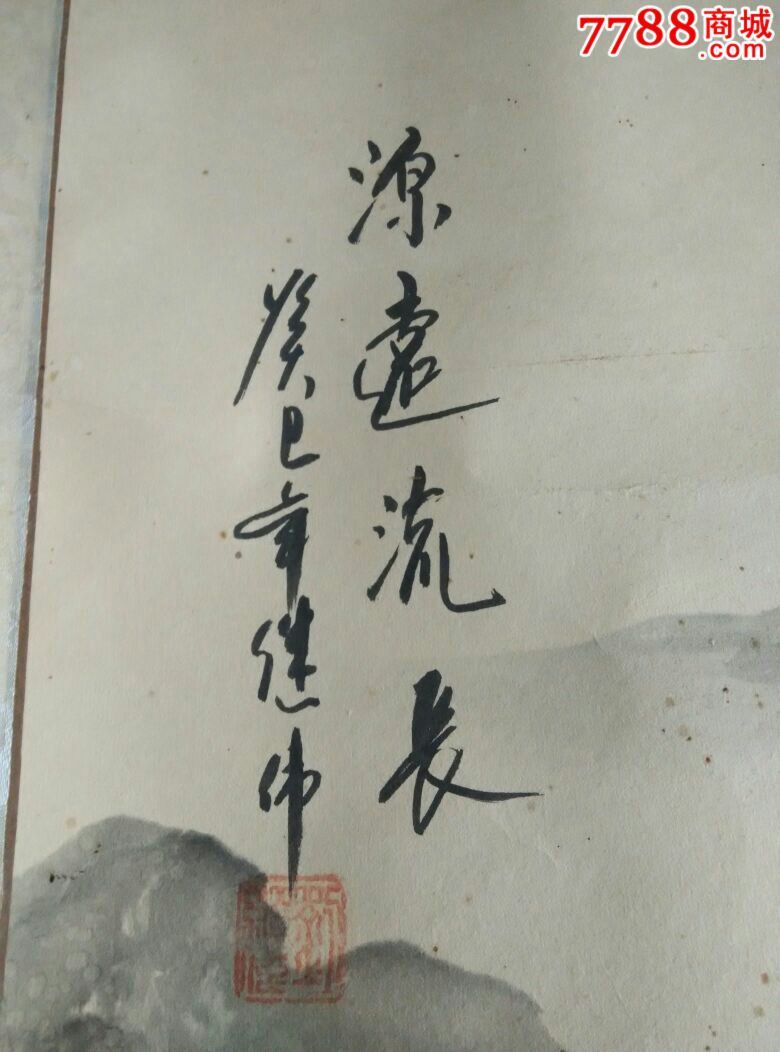 7788商城
.com
源遠流長
癸巳年继伟